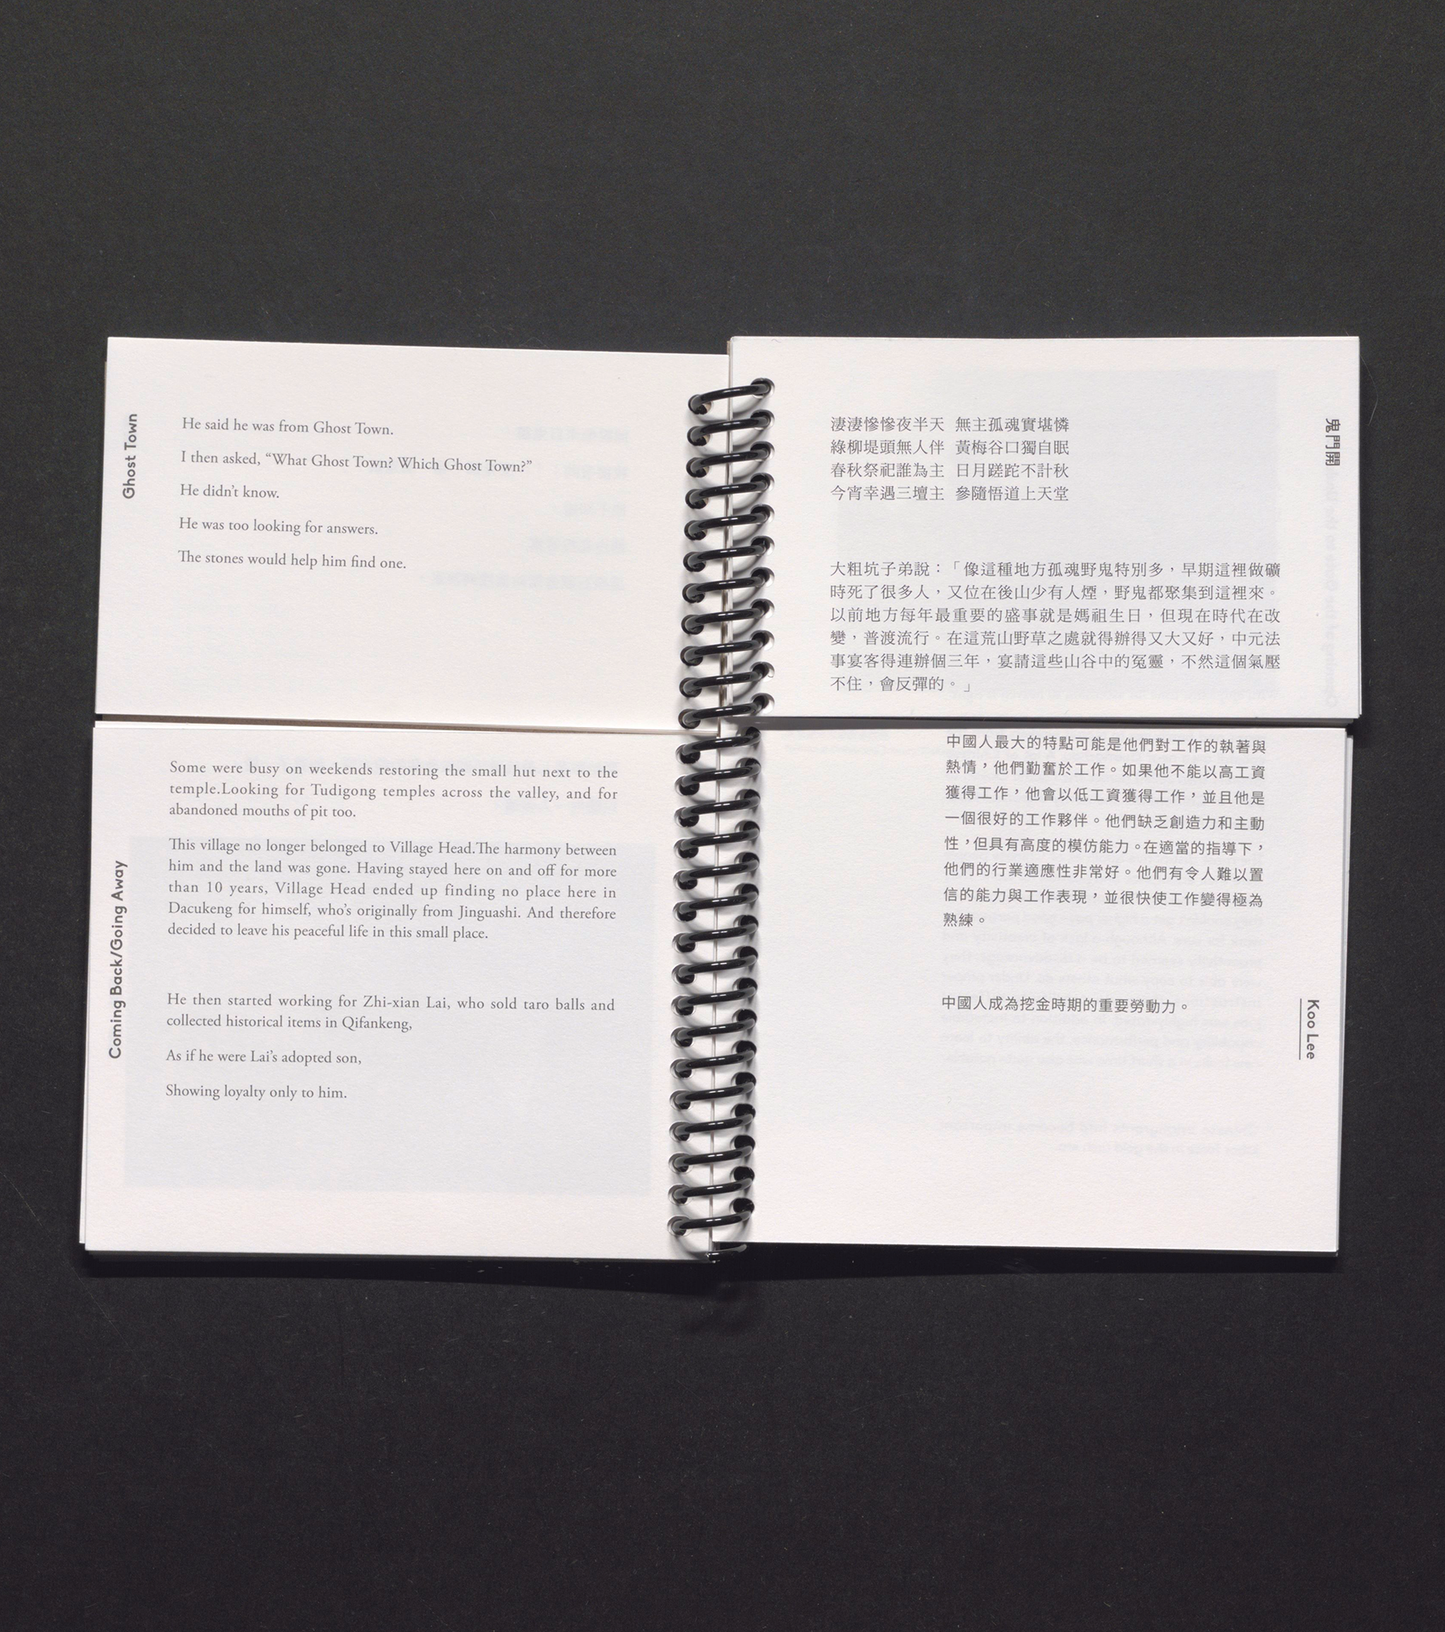 Ghost Town
He said he was from Ghost Town.
I then asked, “What Ghost Town? Which Ghost Town?”
He didn’t know.
He was too looking for answers.
The stones would help him find one.
鬼門開
淒淒慘慘夜半天 無主孤魂實堪憐
綠柳堤頭無人伴 黃梅谷口獨自眠
春秋祭祀誰為主 日月蹉跎不計秋
今宵幸遇三壇主 參隨悟道上天堂
大粗坑子弟說：「像這種地方孤魂野鬼特別多，早期這裡做礦
時死了很多人，又位在後山少有人煙，野鬼都聚集到這裡來。
以前地方每年最重要的盛事就是媽祖生日，但現在時代在改
變，普渡流行。在這荒山野草之處就得辦得又大又好，中元法
事宴客得連辦個三年，宴請這些山谷中的冤靈，不然這個氣壓
不住，會反彈的。」
Coming Back/Going Away
Some were busy on weekends restoring the small hut next to the
temple.Looking for Tudigong temples across the valley, and for
abandoned mouths of pit too.
This village no longer belonged to Village Head.The harmony between
him and the land was gone. Having stayed here on and off for more
than 10 years, Village Head ended up finding no place here in
Dacukeng for himself, who’s originally from Jinguashi. And therefore
decided to leave his peaceful life in this small place.
He then started working for Zhi-xian Lai, who sold taro balls and
collected historical items in Qifankeng,
As if he were Lai’s adopted son,
Showing loyalty only to him.
中國人最大的特點可能是他們對工作的執著與
熱情，他們勤奮於工作。如果他不能以高工資
獲得工作，他會以低工資獲得工作，並且他是
一個很好的工作夥伴。他們缺乏創造力和主動
性，但具有高度的模仿能力。在適當的指導下，
他們的行業適應性非常好。他們有令人難以置
信的能力與工作表現，並很快使工作變得極為
熟練。
中國人成為挖金時期的重要勞動力。
Koo Lee